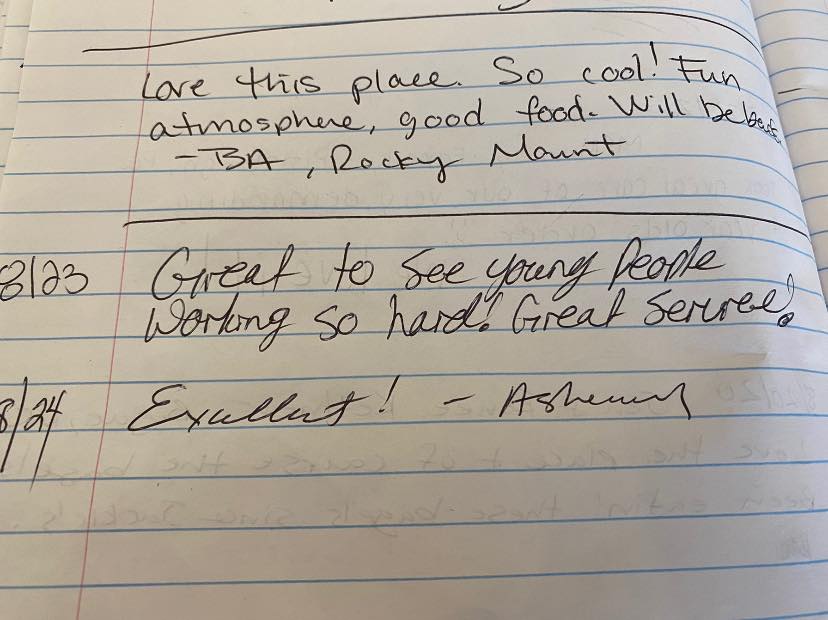 Love this place. So cool! Fun
atmosphere, good food. Will be back
- BA, Rocky Mount
8/23 Great to see young People
Working so hard! Great Service!
8/24 Excellent! -